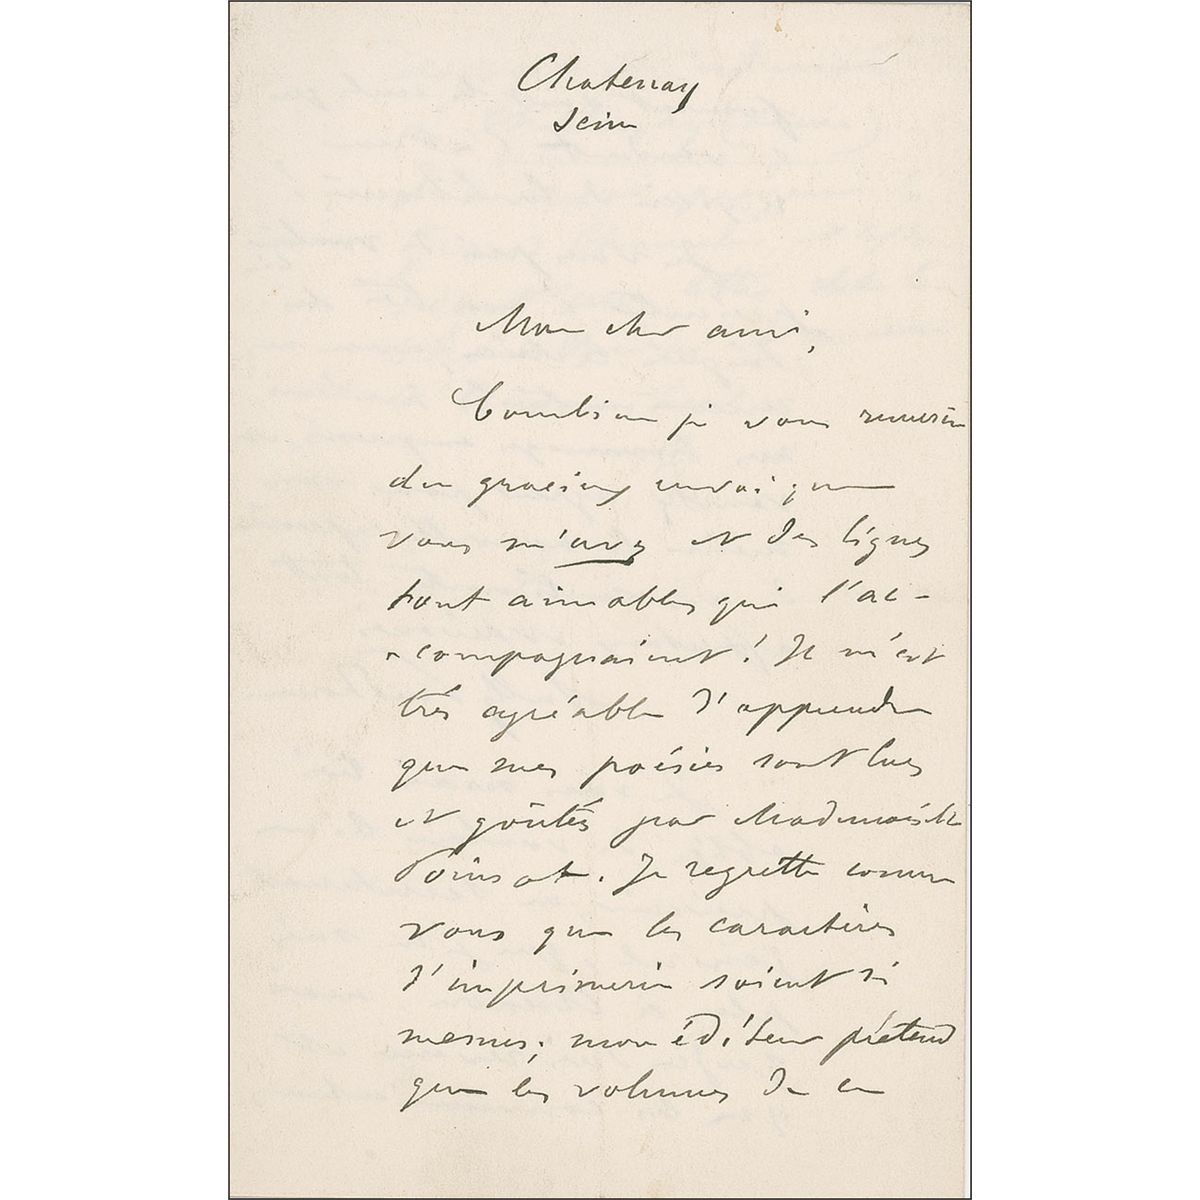 Chatenay
Seine
Mon cher ami,
Combien je vous remercie
du gracieux envoi que
vous m'avez et des lignes
tout aimables qui l'ac-
compagnaient! Il m'est
très agréable d'apprendre
que mes poésies sont lues
et goûtés par Mademoiselle
Poinsot. Je regrette comme
vous que les caractères
d'imprimerie soient si
menus; mon éditeur prétend
que les volumes de ce